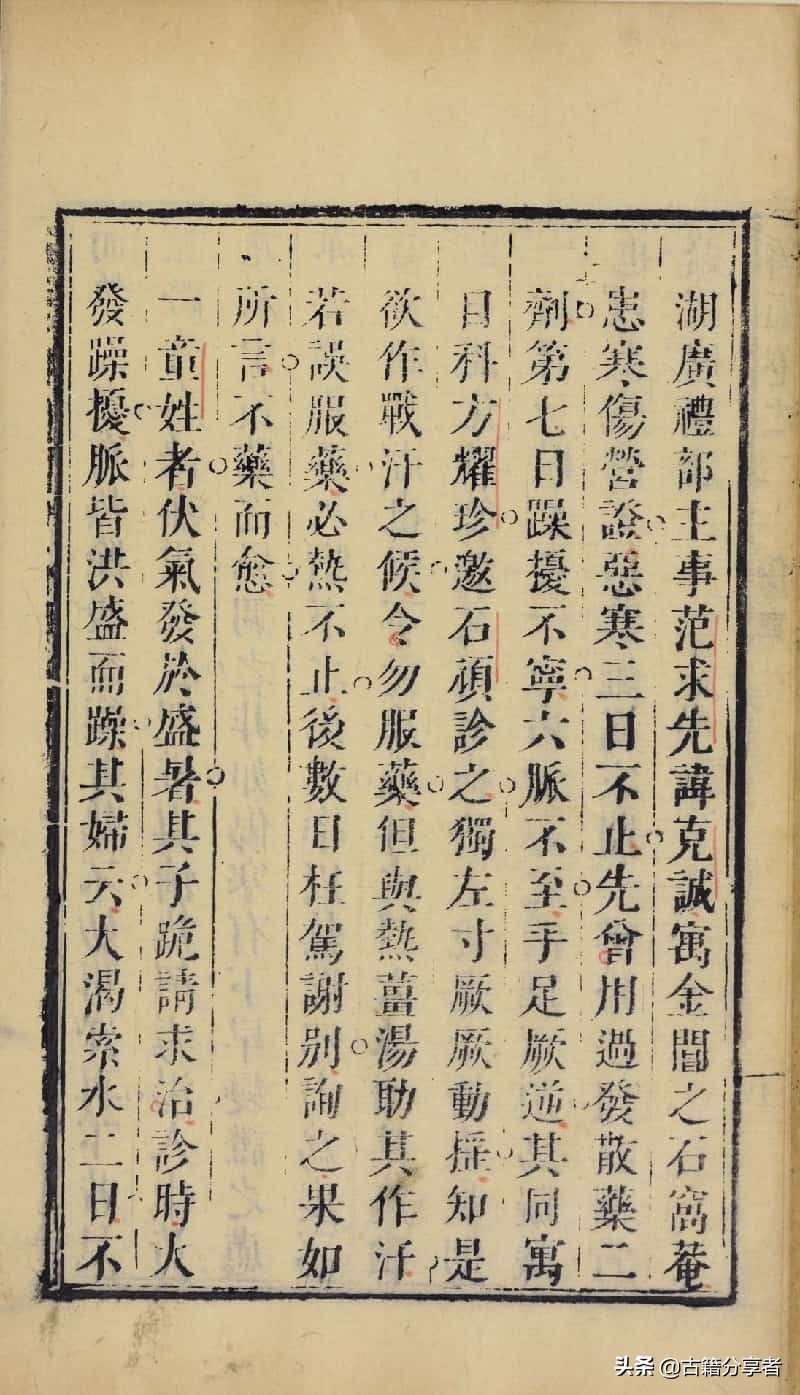 湖廣禮部主事范求先諱克誠寓金閶之石窩菴
患寒傷營證惡寒三日不止先曾用過發散藥二
劑第七日躁擾不寧六脈不至手足厥逆其同寓
目科方耀珍邀石頑診之獨左寸厥厥動搖知是
欲作戰汗之候令勿服藥但與熱薑湯助其作汗
若誤服藥必熱不止後數日枉駕謝別詢之果如
所言不藥而愈
一童姓者伏氣發於盛暑其子跪請求治診時大
發躁擾脈皆洪盛而躁其婦云大渴索水二日不
头条 @古籍分享者